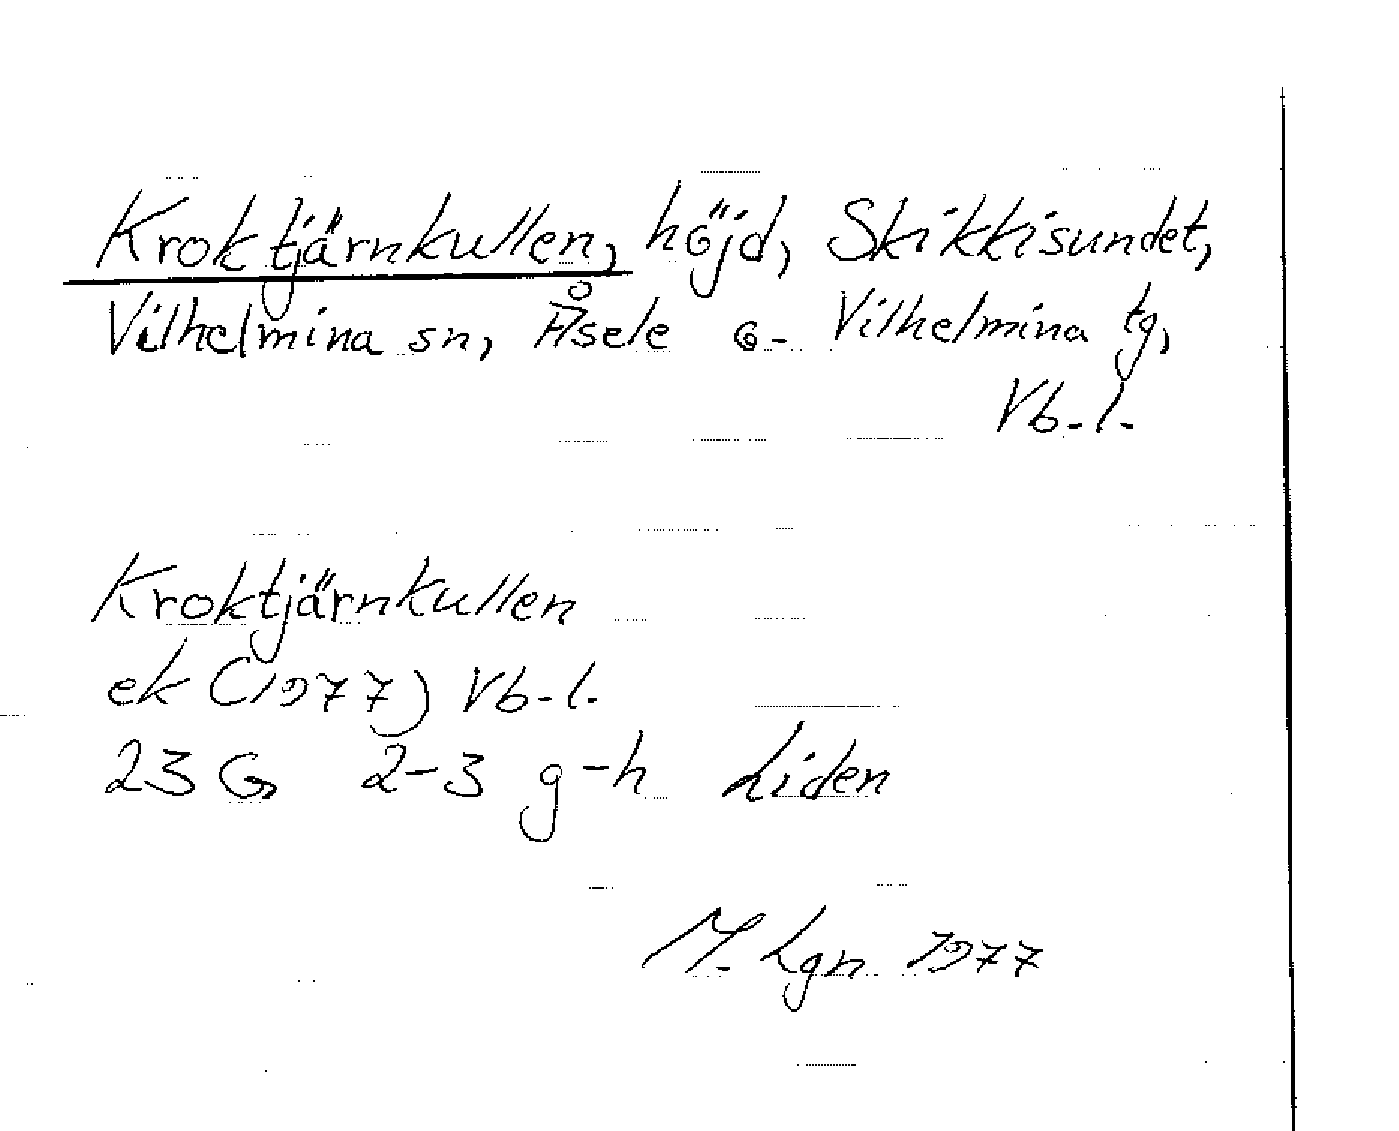 Kroktjärnkullen, höjd, Skikkisundet,
Vilhelmina sn, Åsele o. Vilhelmina tg,
Vb. l.
Kroktjärnkullen
ek (1977) Vb. l.
23 G 2-3 g-h Liden
M. Lgn 1977